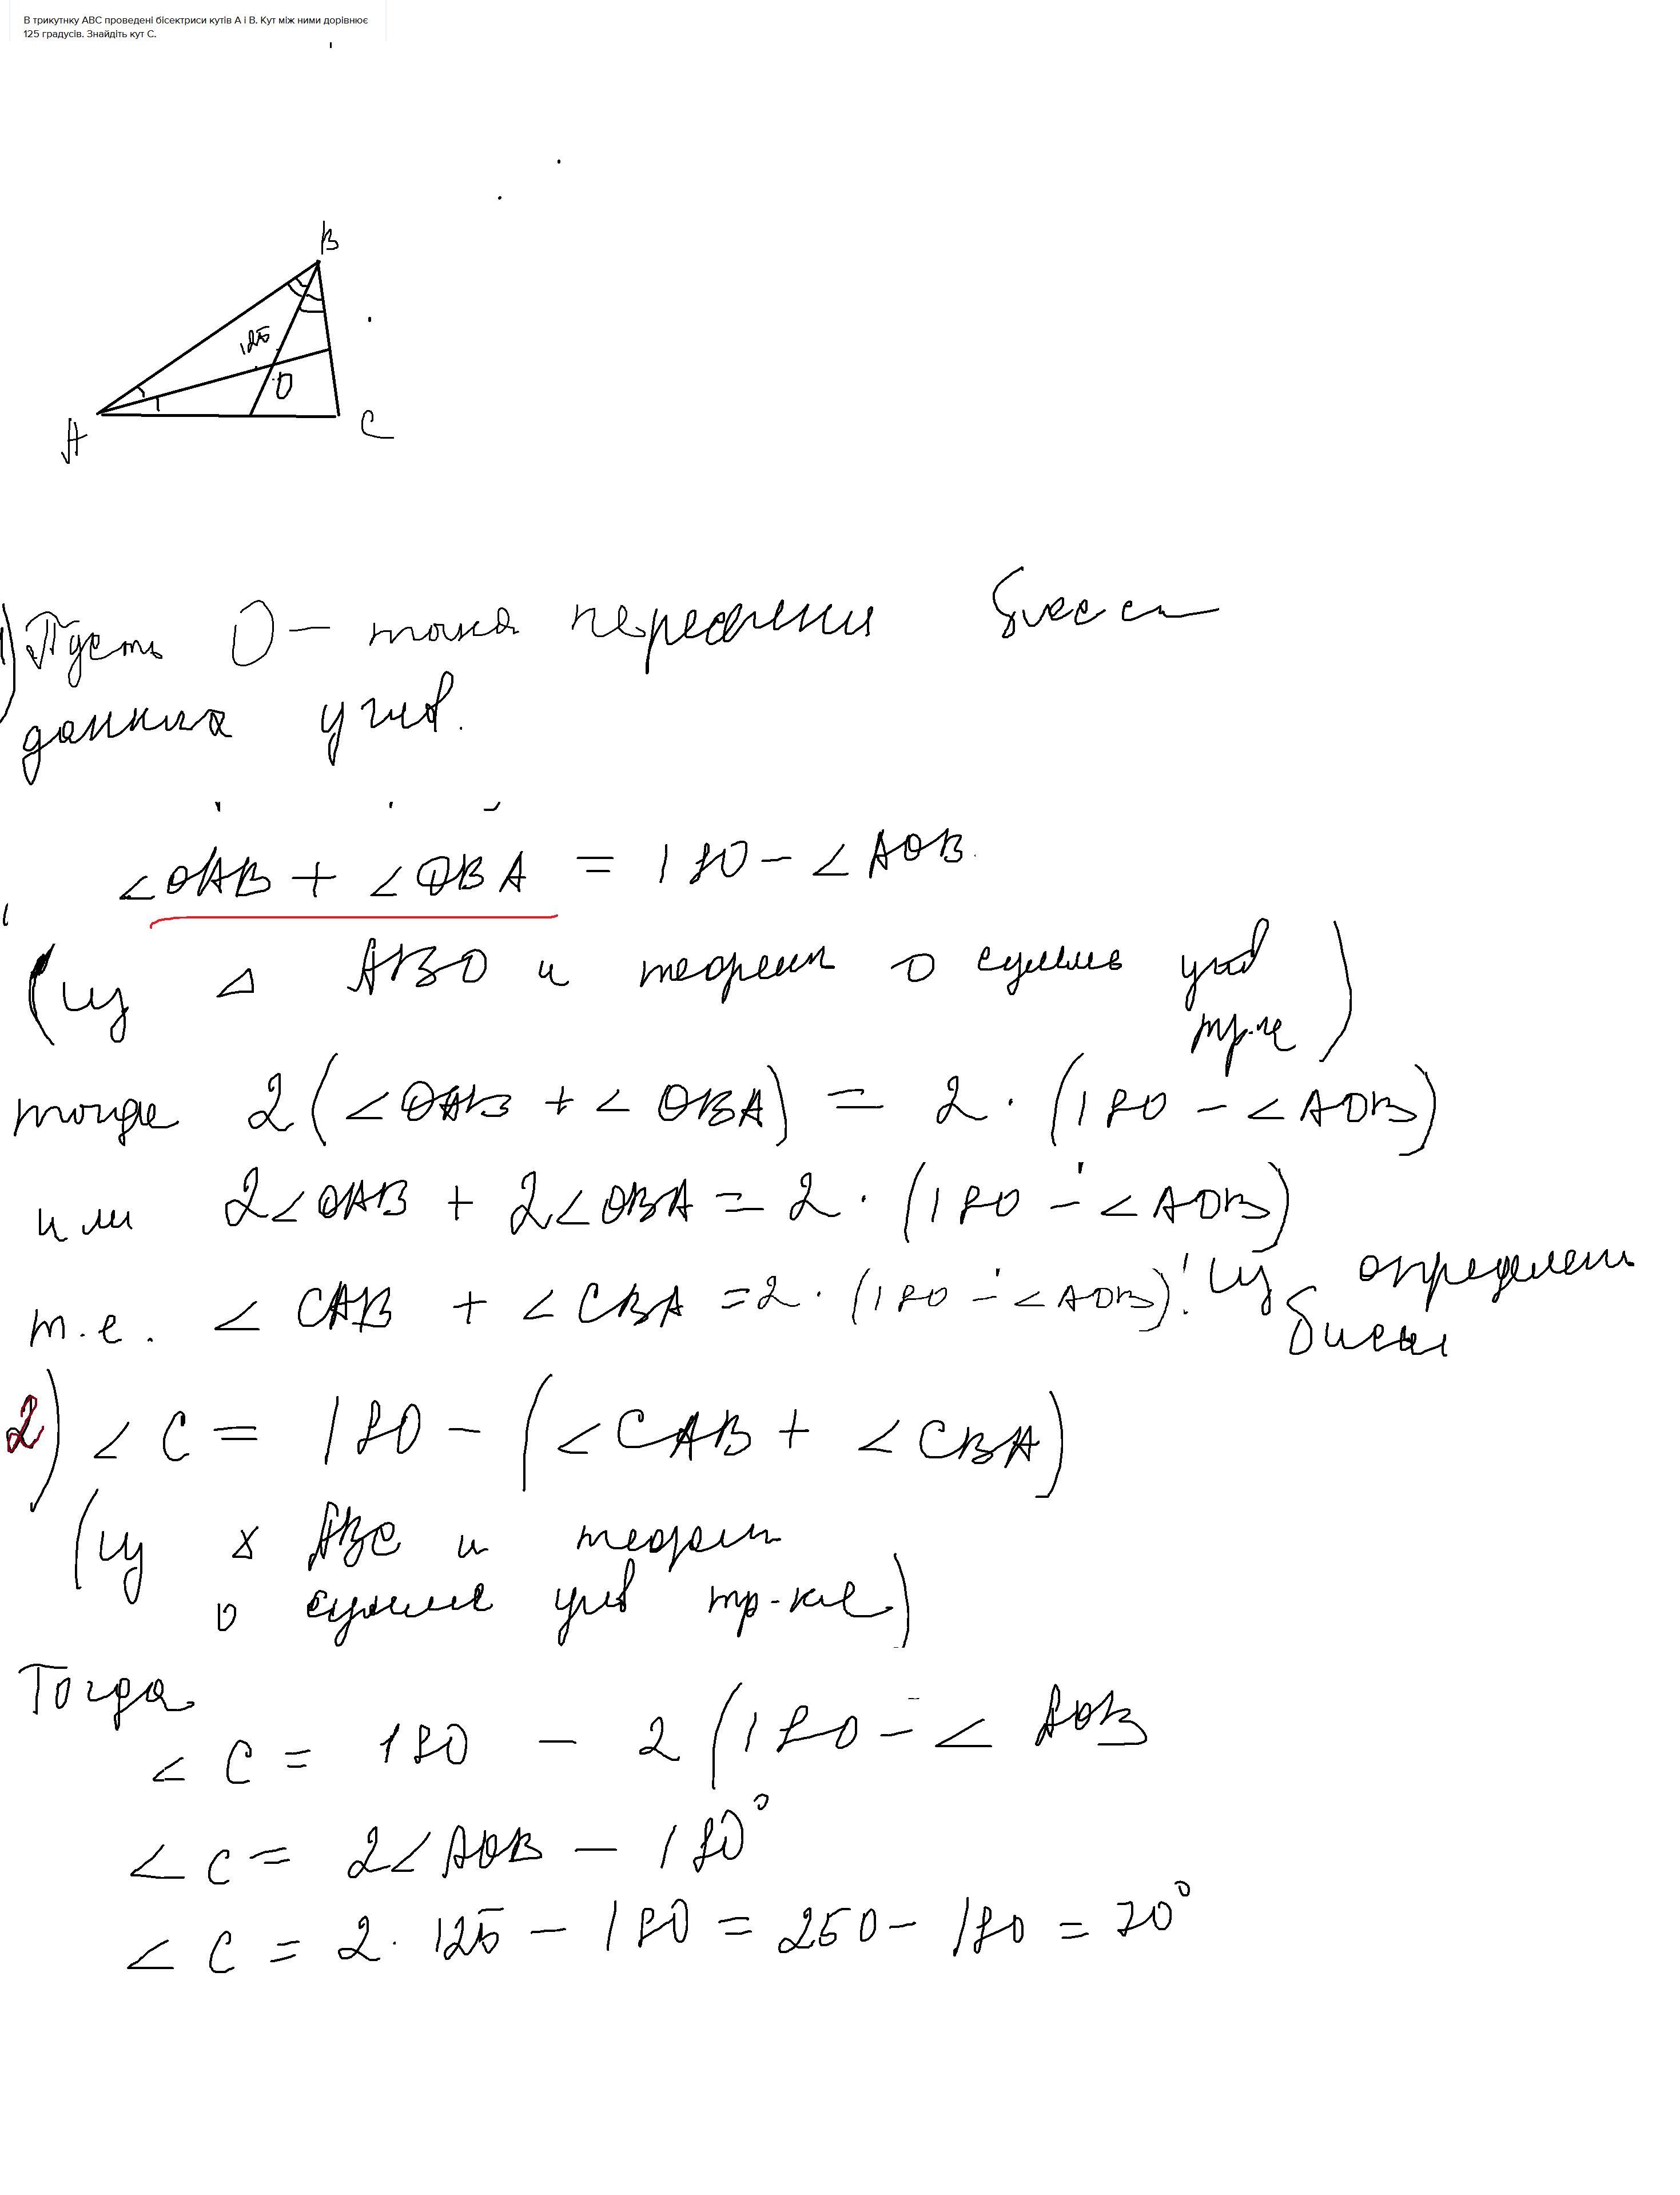 В трикутнку ABC проведені бісектриси кутів A і B. Кут між ними дорівнює
125 градусів. Знайдіть кут C.
B
125
O
A
C
1) Пусть O – точка пересечения
данных углов.
∠OAB + ∠OBA = 180 – ∠AOB.
(из △ ABO и теорем о сумме углов
тр-ка)
тогда 2(∠OAB + ∠OBA) = 2 · (180 – ∠AOB)
или 2∠OAB + 2∠OBA = 2 · (180 – ∠AOB)
т.е. ∠CAB + ∠CBA = 2 · (180 – ∠AOB). Из определен
2) ∠C = 180 – (∠CAB + ∠CBA)
(из △ ABC и теорем
о сумме углов тр-ка)
Тогда
∠C = 180 – 2(180 – ∠AOB
∠C = 2∠AOB – 180°
∠C = 2 · 125 – 180 = 250 – 180 = 70°